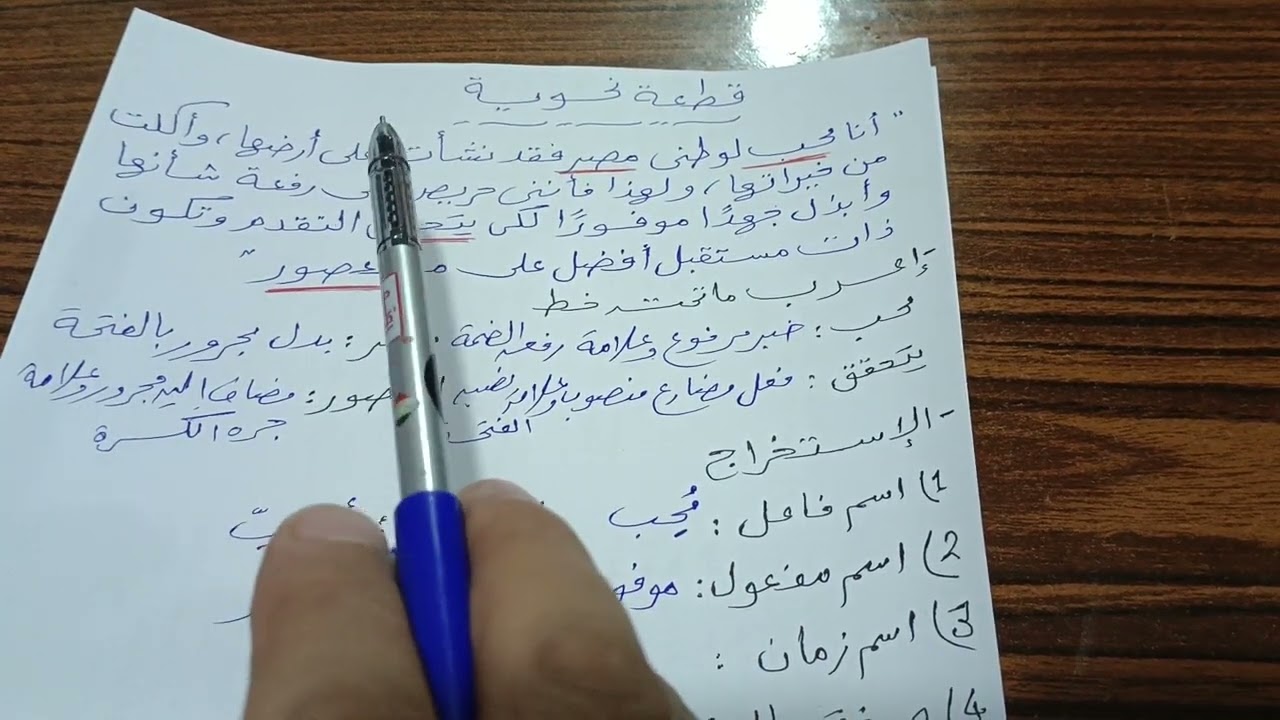 قطعة نحوية
" أنا مُحب لوطنى مصر فقد نشأت على أرضها، وأكلت
من خيراتها، ولهذا فأننى حريص رفعة شأنها
وأبذل جهدًا موفورًا لكى التقدم وتكون
ذات مستقبل أفضل على عصور "
- إعرب ماتحته خط
مُحب : خبر مرفوع وعلامة رفعه الضمة . : بدل مجرور بالفتحة
يتحقق : فعل مضارع منصوب وعلامة نصبه الفتحة
: مضاف إليه مجرور وعلامة جره الكسرة
- الإستخراج
1) اسم فاعل : مُحِب
2) اسم مفعول :
3) اسم زمان :
4)